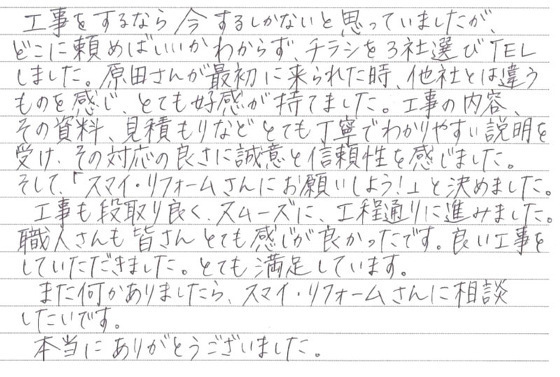 工事をするなら今するしかないと思っていましたが、
どこに頼めばいいかわからず、チラシを3社選びTEL
しました。原田さんが最初に来られた時、他社とは違う
ものを感じ、とても好感が持てました。工事の内容、
その資料、見積もりなどとても丁寧でわかりやすい説明を
受け、その対応の良さに誠意と信頼性を感じました。
そして、「スマイ・リフォームさんにお願いしよう!」と決めました。
工事も段取り良く、スムーズに、工程通りに進みました。
職人さんも皆さんとても感じが良かったです。良い工事を
していただきました。とても満足しています。
また何かありましたら、スマイ・リフォームさんに相談
したいです。
本当にありがとうございました。